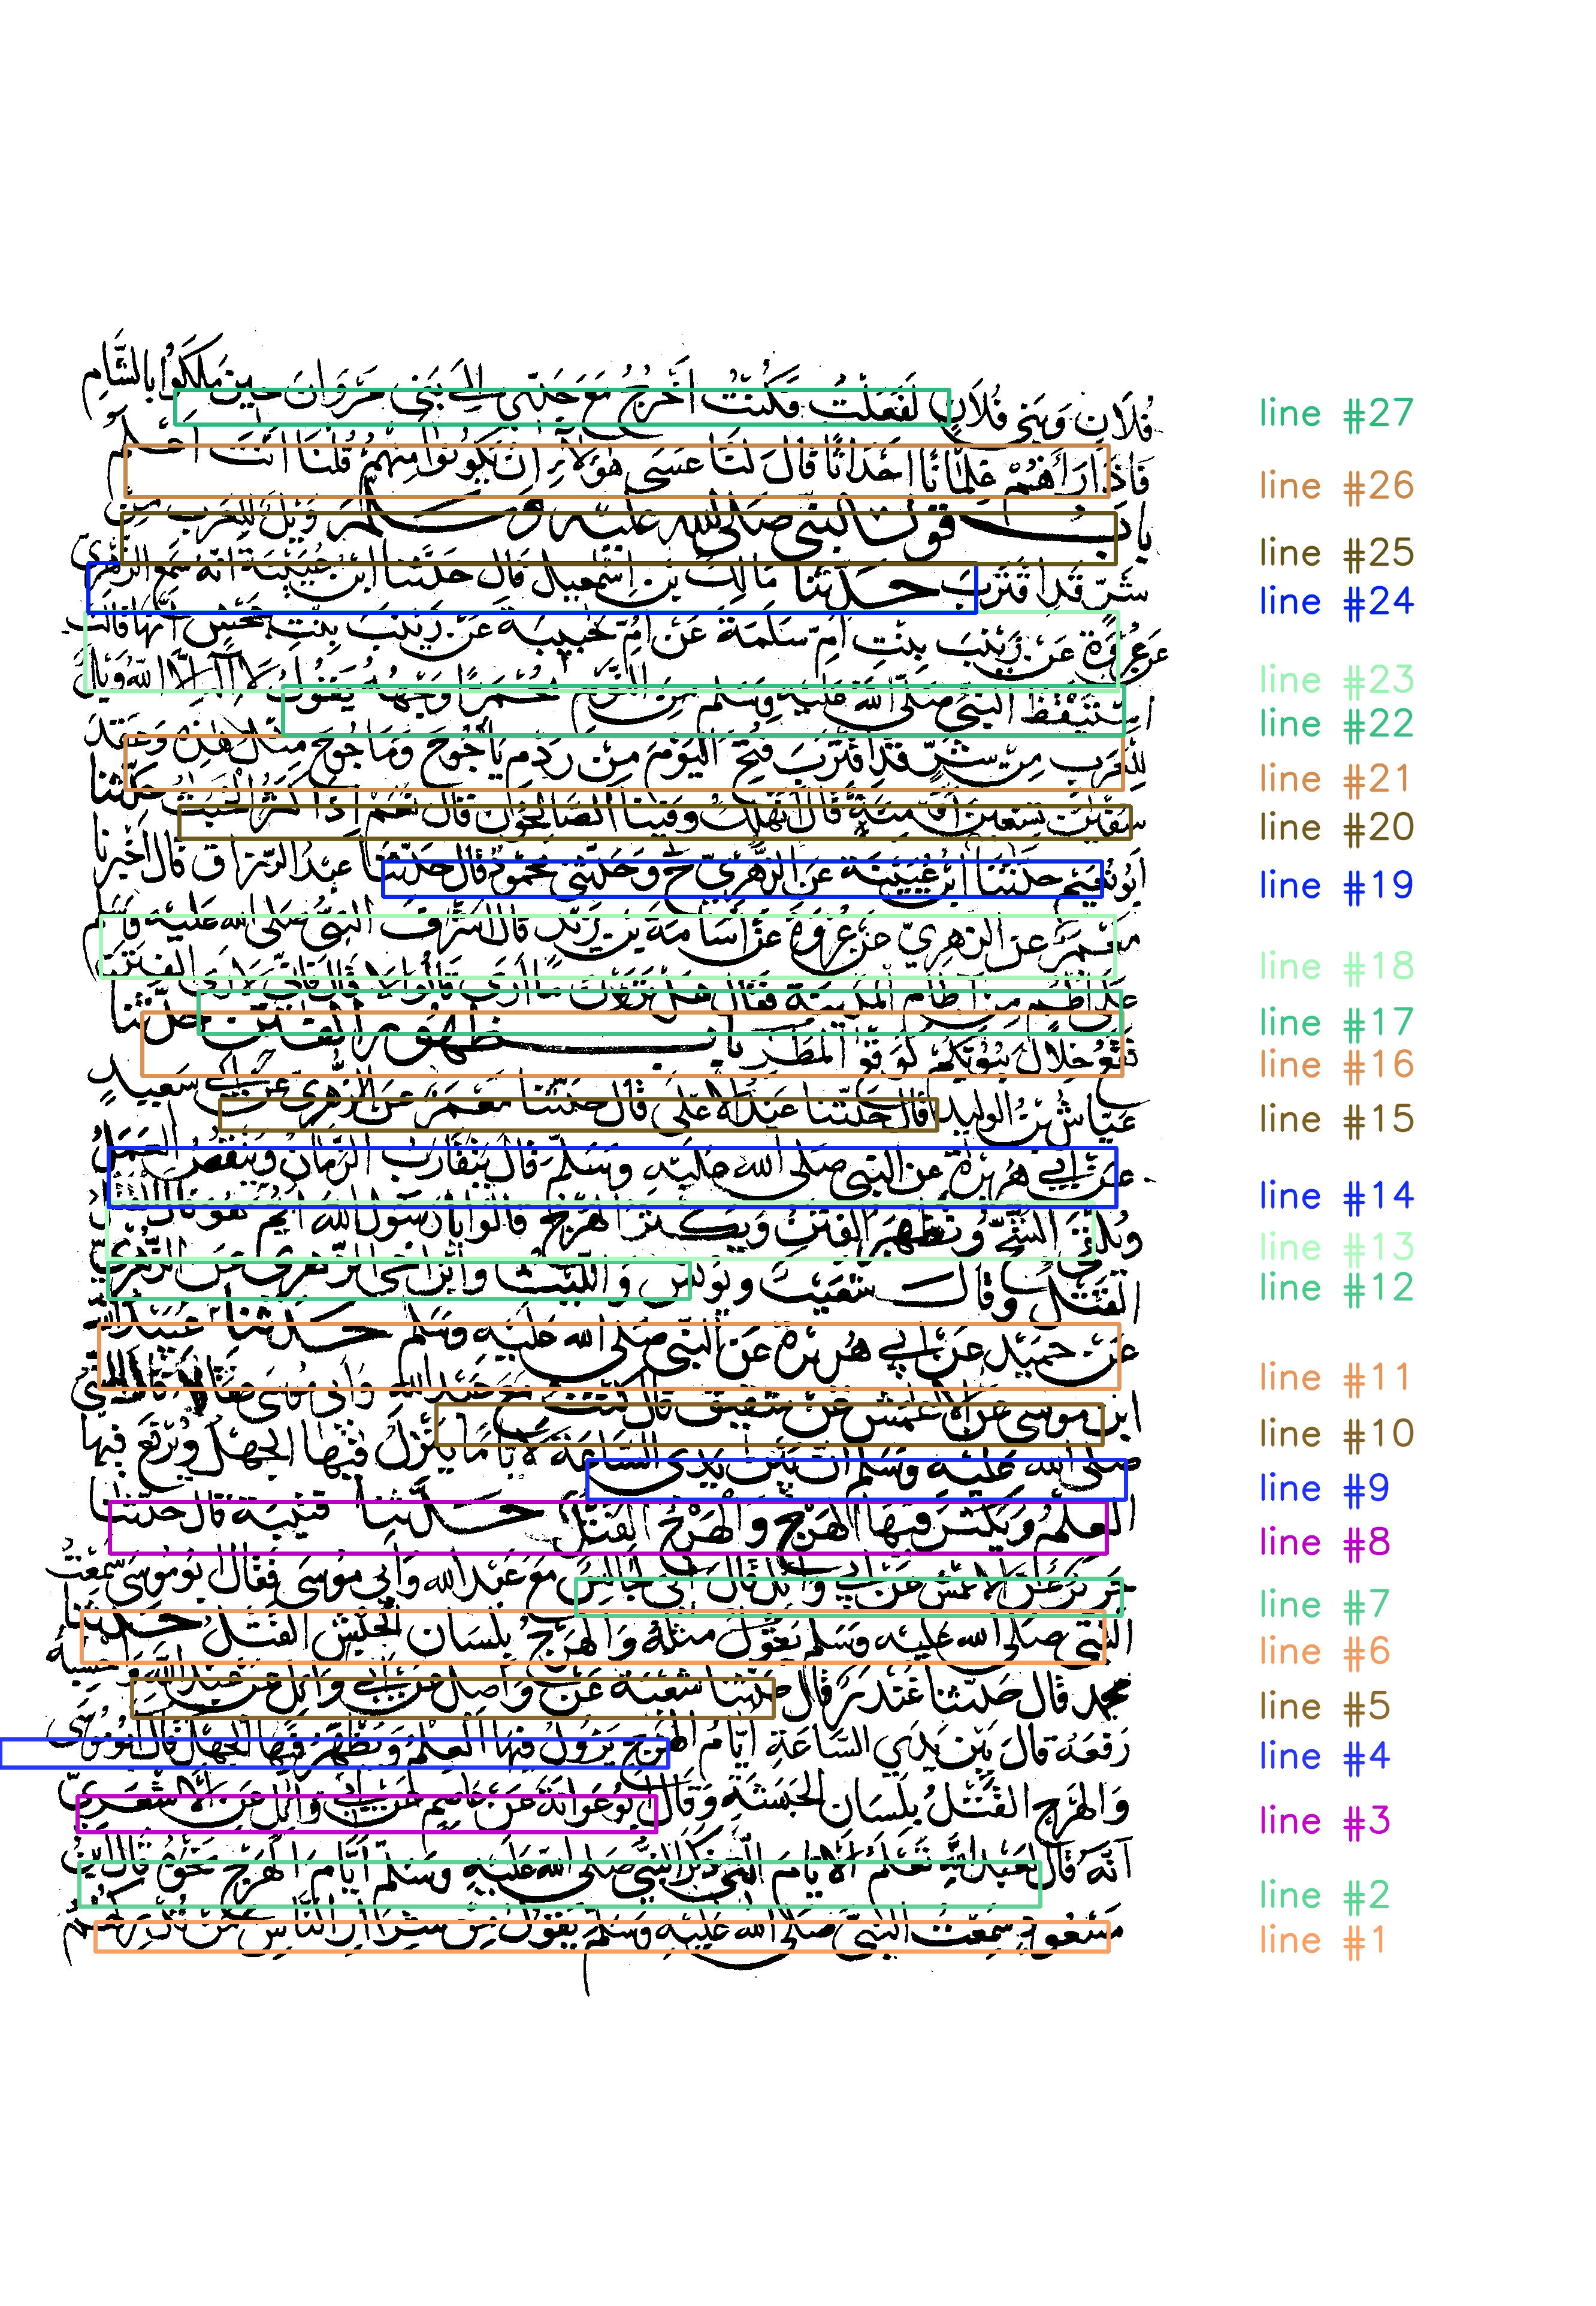 فُلَانٍ وَبَنِي فُلَانٍ لَفَعَلْتُ فَكُنْتُ أَخْرُجُ مَعَ جَدِّي إِلَى بَنِي مَرْوَانَ حِينَ مَلَكُوا بِالشَّامِ line #27
فَإِذَا رَآهُمْ غِلْمَانًا أَحْدَاثًا قَالَ لَنَا عَسَى هَؤُلَاءِ أَنْ يَكُونُوا مِنْهُمْ قُلْنَا أَنْتَ أَعْلَمُ line #26
بَابُ قَوْلِ النَّبِيِّ صَلَّى اللهُ عَلَيْهِ وَسَلَّمَ وَيْلٌ لِلْعَرَبِ مِنْ line #25
شَرٍّ قَدِ اقْتَرَبَ حَدَّثَنَا مَالِكُ بْنُ إِسْمَعِيلَ قَالَ حَدَّثَنَا ابْنُ عُيَيْنَةَ أَنَّهُ سَمِعَ الزُّهْرِيَّ line #24
عَنْ عُرْوَةَ عَنْ زَيْنَبَ بِنْتِ أُمِّ سَلَمَةَ عَنْ أُمِّ حَبِيبَةَ عَنْ زَيْنَبَ بِنْتِ جَحْشٍ أَنَّهَا قَالَتْ line #23
اسْتَيْقَظَ النَّبِيُّ صَلَّى اللهُ عَلَيْهِ وَسَلَّمَ مِنَ النَّوْمِ مُحْمَرًّا وَجْهُهُ يَقُولُ لَا إِلَهَ إِلَّا اللهُ وَيْلٌ line #22
لِلْعَرَبِ مِنْ شَرٍّ قَدِ اقْتَرَبَ فُتِحَ الْيَوْمَ مِنْ رَدْمِ يَأْجُوجَ وَمَأْجُوجَ مِثْلُ هَذِهِ وَعَقَدَ line #21
سُفْيَانُ تِسْعِينَ أَوْ مِئَةً قَالَ أَنَهْلِكُ وَفِينَا الصَّالِحُونَ قَالَ نَعَمْ إِذَا كَثُرَ الْخَبَثُ حَدَّثَنَا line #20
أَبُو نُعَيْمٍ حَدَّثَنَا ابْنُ عُيَيْنَةَ عَنِ الزُّهْرِيِّ ح وَحَدَّثَنِي مَحْمُودٌ قَالَ حَدَّثَنَا عَبْدُ الرَّزَّاقِ قَالَ أَخْبَرَنَا line #19
مَعْمَرٌ عَنِ الزُّهْرِيِّ عَنْ عُرْوَةَ عَنْ أُسَامَةَ بْنِ زَيْدٍ قَالَ أَشْرَفَ النَّبِيُّ صَلَّى اللهُ عَلَيْهِ وَسَلَّمَ line #18
عَلَى أُطُمٍ مِنْ آطَامِ الْمَدِينَةِ فَقَالَ هَلْ تَرَوْنَ مَا أَرَى قَالُوا لَا قَالَ فَإِنِّي لَأَرَى الْفِتَنَ line #17
تَقَعُ خِلَالَ بُيُوتِكُمْ كَوَقْعِ الْمَطَرِ بَابُ ظُهُورِ الْفِتَنِ حَدَّثَنَا line #16
عَيَّاشُ بْنُ الْوَلِيدِ قَالَ حَدَّثَنَا عَبْدُ الْأَعْلَى قَالَ حَدَّثَنَا مَعْمَرٌ عَنِ الزُّهْرِيِّ عَنْ سَعِيدٍ line #15
عَنْ أَبِي هُرَيْرَةَ عَنِ النَّبِيِّ صَلَّى اللهُ عَلَيْهِ وَسَلَّمَ قَالَ يَتَقَارَبُ الزَّمَانُ وَيَنْقُصُ الْعَمَلُ line #14
وَيُلْقَى الشُّحُّ وَتَظْهَرُ الْفِتَنُ وَيَكْثُرُ الْهَرْجُ قَالُوا يَا رَسُولَ اللهِ أَيُّمَ هُوَ قَالَ الْقَتْلُ line #13
الْقَتْلُ وَقَالَ شُعَيْبٌ وَيُونُسُ وَاللَّيْثُ وَابْنُ أَخِي الزُّهْرِيِّ عَنِ الزُّهْرِيِّ line #12
عَنْ حُمَيْدٍ عَنْ أَبِي هُرَيْرَةَ عَنِ النَّبِيِّ صَلَّى اللهُ عَلَيْهِ وَسَلَّمَ حَدَّثَنَا عُبَيْدُ اللهِ line #11
ابْنُ مُوسَى عَنِ الْأَعْمَشِ عَنْ شَقِيقٍ قَالَ كُنْتُ مَعَ عَبْدِ اللهِ وَأَبِي مُوسَى فَقَالَا قَالَ النَّبِيُّ line #10
صَلَّى اللهُ عَلَيْهِ وَسَلَّمَ إِنَّ بَيْنَ يَدَيِ السَّاعَةِ لَأَيَّامًا يَنْزِلُ فِيهَا الْجَهْلُ وَيُرْفَعُ فِيهَا line #9
الْعِلْمُ وَيَكْثُرُ فِيهَا الْهَرْجُ وَالْهَرْجُ الْقَتْلُ حَدَّثَنَا قُتَيْبَةُ قَالَ حَدَّثَنَا line #8
جَرِيرٌ عَنِ الْأَعْمَشِ عَنْ أَبِي وَائِلٍ قَالَ إِنِّي لَجَالِسٌ مَعَ عَبْدِ اللهِ وَأَبِي مُوسَى فَقَالَ أَبُو مُوسَى سَمِعْتُ line #7
النَّبِيَّ صَلَّى اللهُ عَلَيْهِ وَسَلَّمَ يَقُولُ مِثْلَهُ وَالْهَرْجُ بِلِسَانِ الْحَبَشِ الْقَتْلُ حَدَّثَنَا line #6
مُحَمَّدٌ قَالَ حَدَّثَنَا غُنْدَرٌ قَالَ حَدَّثَنَا شُعْبَةُ عَنْ وَاصِلٍ عَنْ أَبِي وَائِلٍ عَنْ عَبْدِ اللهِ وَأَحْسِبُهُ line #5
رَفَعَهُ قَالَ بَيْنَ يَدَيِ السَّاعَةِ أَيَّامُ الْهَرْجِ يَزُولُ فِيهَا الْعِلْمُ وَيَظْهَرُ فِيهَا الْجَهْلُ قَالَ أَبُو مُوسَى line #4
وَالْهَرْجُ الْقَتْلُ بِلِسَانِ الْحَبَشَةِ وَقَالَ أَبُو عَوَانَةَ عَنْ عَاصِمٍ عَنْ أَبِي وَائِلٍ عَنِ الْأَشْعَرِيِّ line #3
أَنَّهُ قَالَ لِعَبْدِ اللهِ تَعْلَمُ الْأَيَّامَ الَّتِي ذَكَرَ النَّبِيُّ صَلَّى اللهُ عَلَيْهِ وَسَلَّمَ أَيَّامَ الْهَرْجِ نَحْوَهُ قَالَ ابْنُ line #2
مَسْعُودٍ سَمِعْتُ النَّبِيَّ صَلَّى اللهُ عَلَيْهِ وَسَلَّمَ يَقُولُ مِنْ شِرَارِ النَّاسِ مَنْ تُدْرِكْهُمُ line #1